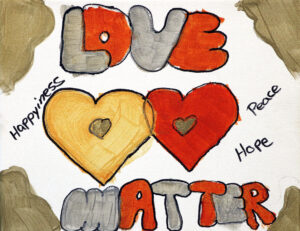 LOVE
Happyiness
Peace
Hope
MATTER